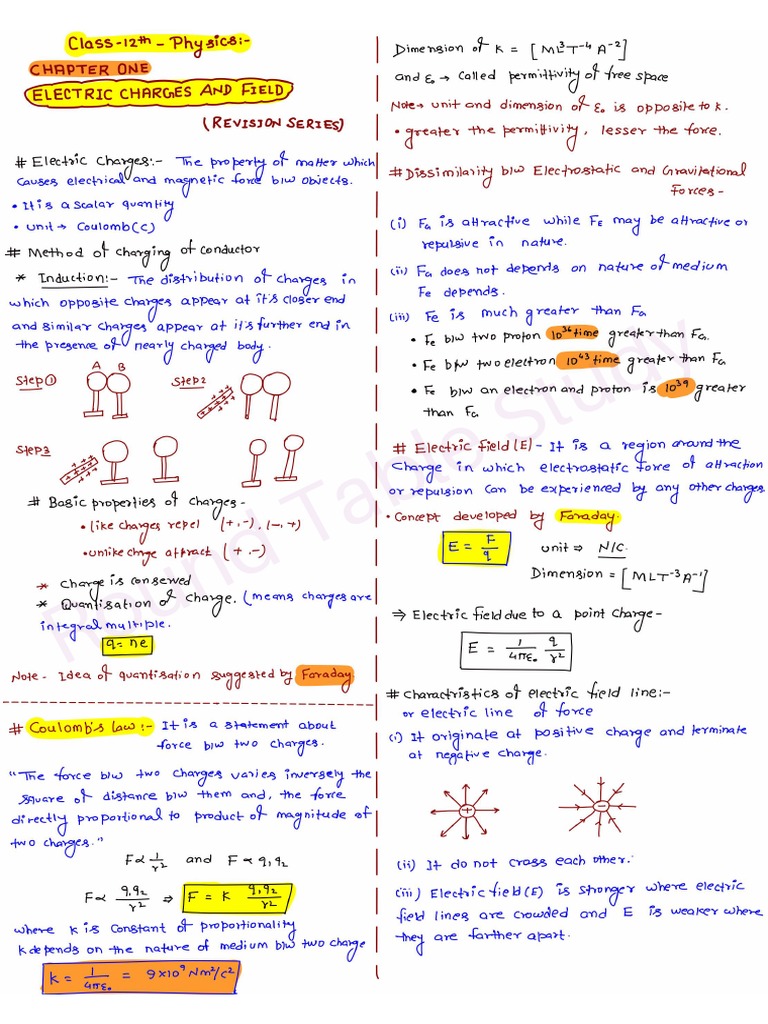 Class-12th - Physics:-
CHAPTER ONE
ELECTRIC CHARGES AND FIELD
(REVISION SERIES)
# Electric Charges:- The property of matter which
causes electrical and magnetic force b/w objects.
• It is a scalar quantity
• unit → Coulomb(C)
# Method of charging of conductor
* Induction:- The distribution of charges in
which opposite charges appear at it's closer end
and similar charges appear at it's further end in
the presence of nearly charged body.
A B
Step ① Step 2
Step 3
# Basic properties of charges-
• like charges repel (+,-), (-,+)
• unlike chrge attract (+,-)
* Charge is conserved
* Quantisation of charge. (means charges are
integral multiple.
q = ne
Note - Idea of quantisation suggested by Faraday
# Coulomb's law:- It is a statement about
force b/w two charges.
"The force b/w two charges varies inversely the
square of distance b/w them and, the force
directly proportional to product of magnitude of
two charges."
F ∝ 1/r² and F ∝ q₁q₂
F ∝ q₁q₂/r² ⇒ F = K q₁q₂/r²
where k is constant of proportionality
k depends on the nature of medium b/w two charge
K = 1/4πε₀ = 9×10⁹ Nm²/c²
Dimension of K = [ML³T⁻⁴A⁻²]
and ε₀ → called permittivity of free space
Note → unit and dimension of ε₀ is opposite to k.
• greater the permittivity, lesser the force.
# Dissimilarity b/w Electrostatic and Gravitational
Forces-
(i) FG is attractive while FE may be attractive or
repulsive in nature.
(ii) FG does not depends on nature of medium
Fe depends.
(iii) Fe is much greater than FG
• Fe b/w two proton 10³⁶ time greater than FG.
• Fe b/w two electron 10⁴³ time greater than FG
• Fe b/w an electron and proton is 10³⁹ greater
than FG
# Electric field (E) - It is a region around the
charge in which electrostatic force of attraction
or repulsion can be experienced by any other charges
• Concept developed by Faraday.
E = F/q unit ⇒ N/C.
Dimension = [MLT⁻³A⁻¹]
⇒ Electric field due to a point charge-
E = 1/4πε₀ q/r²
# Charactristics of electric field line:-
or electric line of force
(i) It originate at positive charge and terminate
at negative charge.
+ -
(ii) It do not cross each other.
(iii) Electric field (E) is stronger where electric
field lines are crowded and E is weaker where
they are farther apart.
Round Table Study